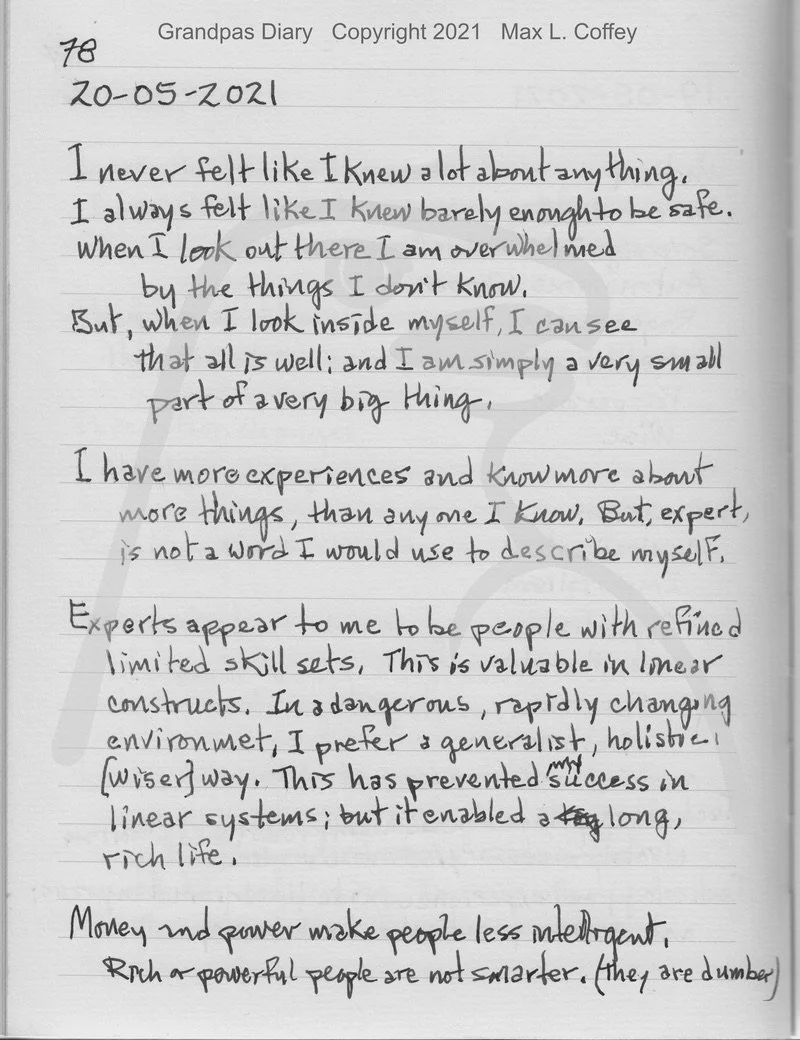 Grandpas Diary Copyright 2021 Max L. Coffey
78
20-05-2021
I never felt like I knew a lot about anything.
I always felt like I knew barely enough to be safe.
When I look out there I am overwhelmed
by the things I don't know.
But, when I look inside myself, I can see
that all is well; and I am simply a very small
part of a very big thing.
I have more experiences and know more about
more things, than any one I know. But, expert,
is not a word I would use to describe myself.
Experts appear to me to be people with refined
limited skill sets. This is valuable in linear
constructs. In a dangerous, rapidly changing
environmet, I prefer a generalist, holistic,
[wiser] way. This has prevented my success in
linear systems; but it enabled a long,
rich life.
Money and power make people less intelligent.
Rich or powerful people are not smarter. (they are dumber)